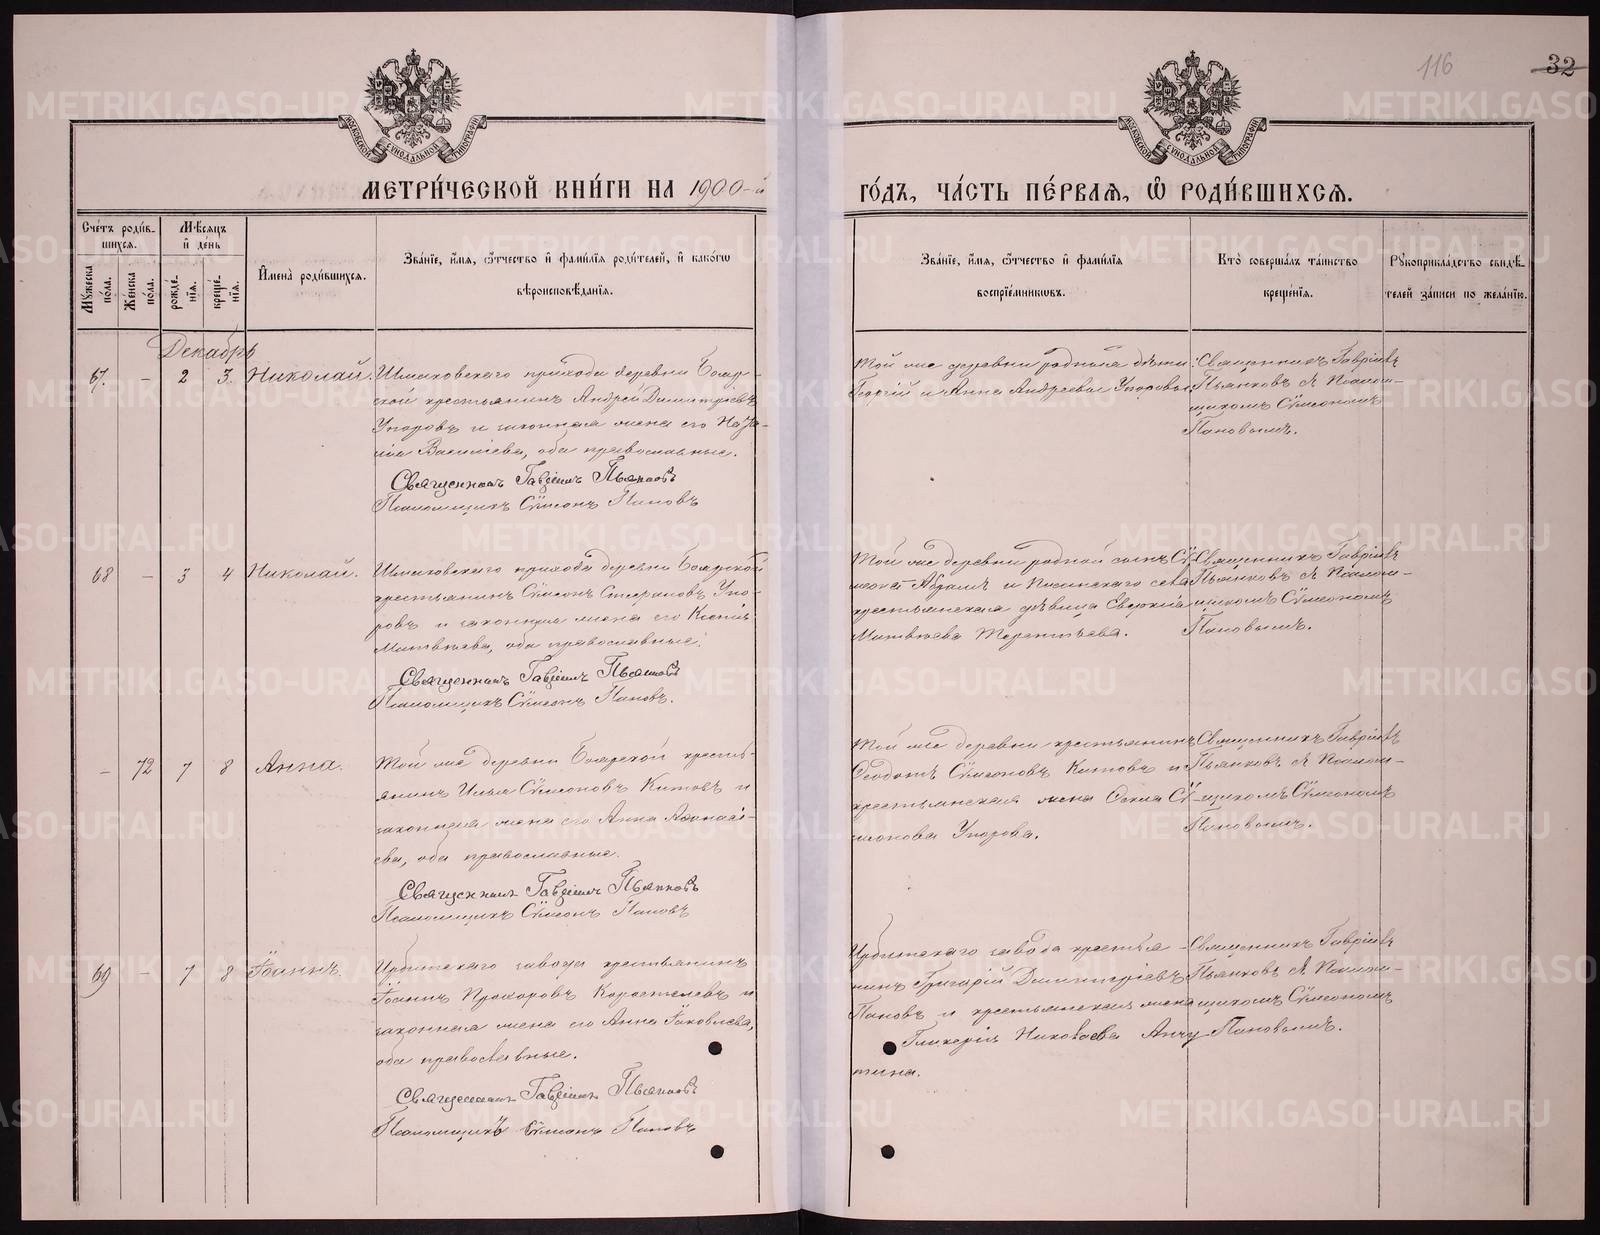 116
32
МЕТРИ́ЧЕСКОЙ КНИ́ГИ НА 1900-й
ГО́ДЪ, ЧА́СТЬ ПЕ́РВАѦ, Ѽ РОДИ́ВШИХСѦ.
Сче́тъ роди́в-
шихсѧ.
Мѣ́сѧцъ
и̂ де́нь
Мꙋ́жеска по́ла.
Же́нска по́ла.
рожде́-
нїѧ.
креще́-
нїѧ.
И̂мена̀ роди́вшихсѧ.
Зва́нїе, и́мѧ, ѻ́тчество и̂ фами́лїѧ роди́телей, и̂ како́гѡ
вѣроисповѣ́данїѧ.
Зва́нїе, и́мѧ, ѻ́тчество и̂ фами́лїѧ
воспрїе́мникѡвъ.
Кто̀ соверша́лъ та́инство
креще́нїѧ.
Рꙋкоприкла́дство свидѣ́-
телей за́писи по жела́нїю.
Декабрь
67. - 2 3. Николай.
Шмаковскаго прихода деревни Бояр-
ской крестьянинъ Андрей Димитріевъ
Упоровъ и законная жена его
Васильева, оба православные.
Священникъ Гавріилъ Пьянковъ
Псаломщикъ Сѵмеонъ Пановъ
Той же деревни родныя дѣти
Георгій и Анна Андреевы Упоровы
Священникъ Гавріилъ
Пьянковъ съ Псалом-
щикомъ Сѵмеономъ
Пановымъ.
68 - 3 4 Николай.
Шмаковскаго прихода деревни Боярской
крестьянинъ Сѵмеонъ Упо-
ровъ и законная жена его Ксенія
Матвѣева, оба православные.
Священникъ Гавріилъ Пьянковъ
Псаломщикъ Сѵмеонъ Пановъ.
Той же деревни родной сынъ Сѵ-
меона и села
крестьянская дѣвица
Матвѣева Терентьева.
Священникъ Гавріилъ
Пьянковъ съ Псалом-
щикомъ Сѵмеономъ
Пановымъ.
- 72 7 8 Анна.
Той же деревни Боярской кресть-
янинъ Илья Сѵмеоновъ Китовъ и
законная жена его Анна Аѳанасі-
ева, оба православные.
Священникъ Гавріилъ Пьянковъ
Псаломщикъ Сѵмеонъ Пановъ
Той же деревни крестьянинъ
Ѳеодотъ Сѵмеоновъ Китовъ и
крестьянская жена Сѵ-
меонова Упорова.
Священникъ Гавріилъ
Пьянковъ съ Псалом-
щикомъ Сѵмеономъ
Пановымъ.
69 - 7 8 Іоаннъ.
Ирбитскаго завода крестьянинъ
Іоаннъ Прохоровъ Коростелевъ и
законная жена его Анна Іаковлева,
оба православные.
Священникъ Гавріилъ Пьянковъ
Псаломщикъ Сѵмеонъ Пановъ
Ирбитскаго завода крестья-
нинъ Григорій Димитріевъ
Пановъ и крестьянская жена
Гликерія Николаева Анчу-
тина.
Священникъ Гавріилъ
Пьянковъ съ Псалом-
щикомъ Сѵмеономъ
Пановымъ.
METRIKI.GASO-URAL.RU